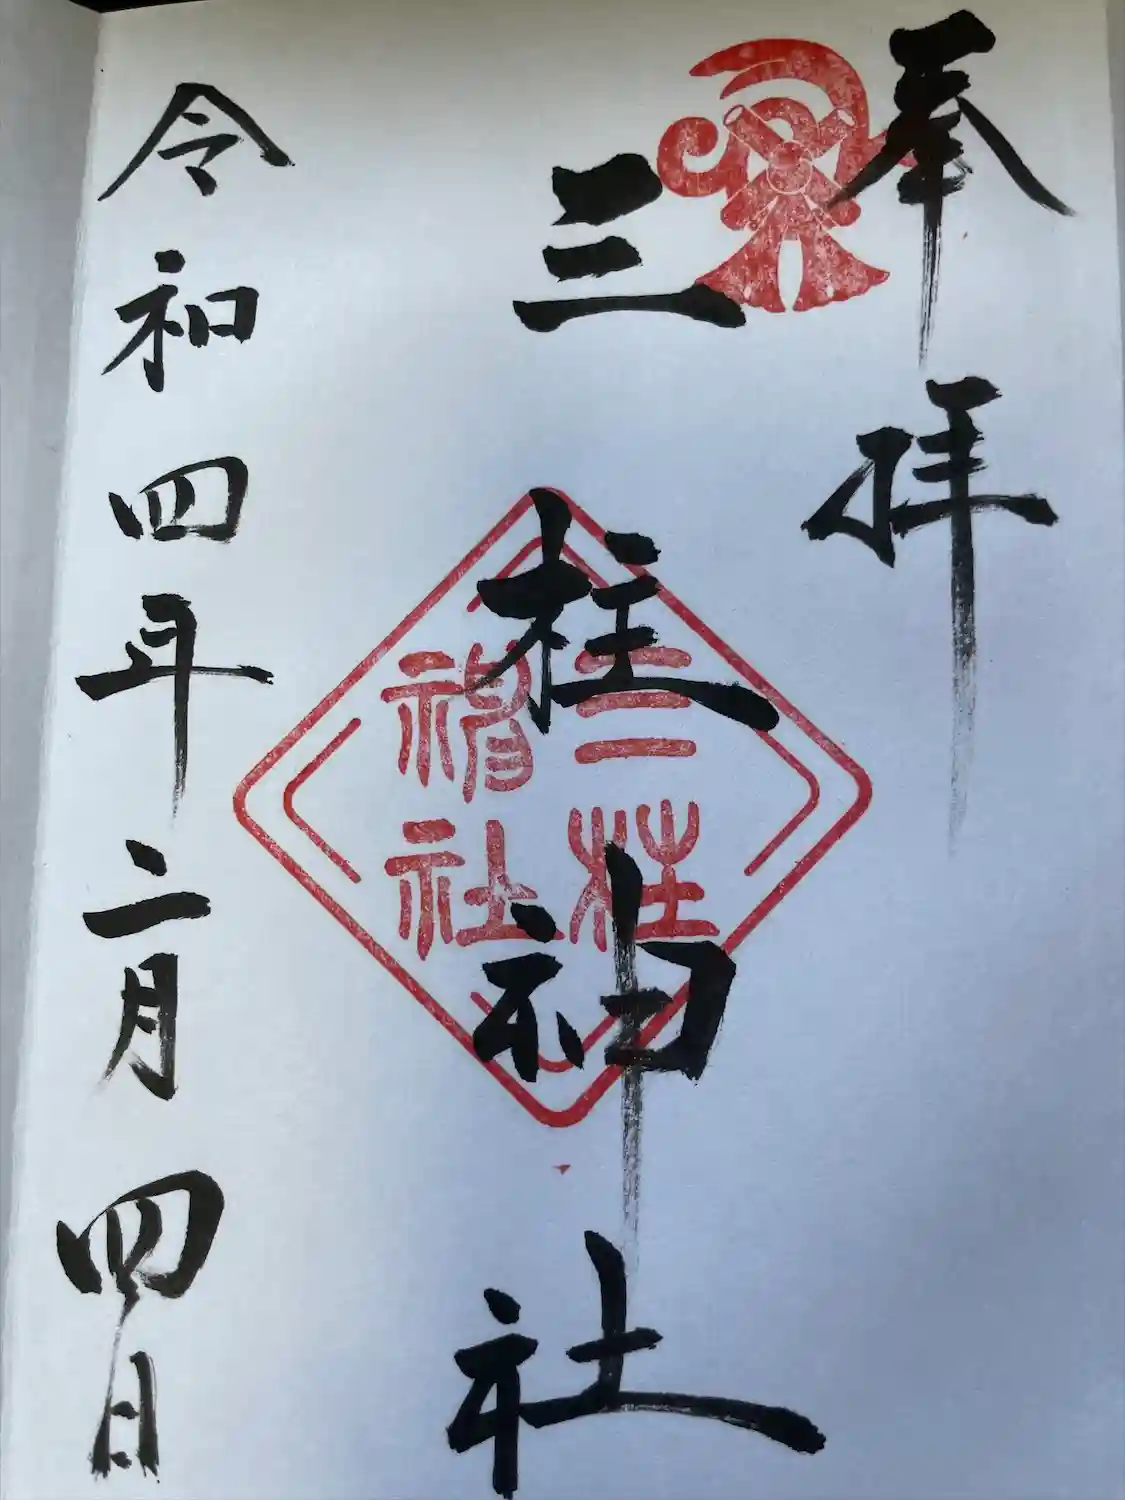 奉拝
三柱神社
三柱
神社
令和四年二月四日